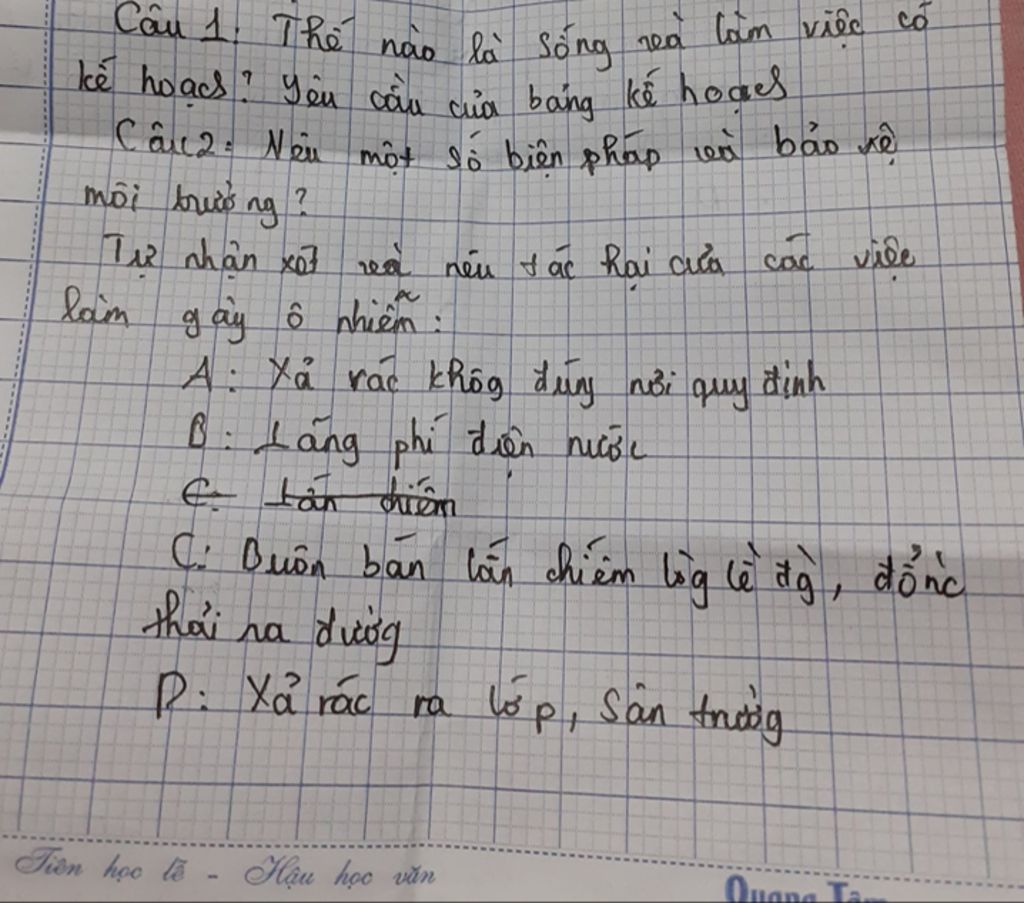 Câu 1: Thế nào là sống và làm việc có
kế hoạch? Yêu cầu của bảng kế hoạch
Câu 2: Nêu một số biện pháp và bảo vệ
môi trường?
Tự nhận xét và nêu tác hại của các việc
làm gây ô nhiễm:
A: Xả rác khôg đúng nơi quy định
B: Lãng phí điện nước
C: Lấn chiếm
C: Buôn bán lấn chiếm lòg lề đg, đổ nc
thải ra đườg
D: Xả rác ra lớp, sân trườg
Tiên học lễ - Hậu học văn
Quang Tâm